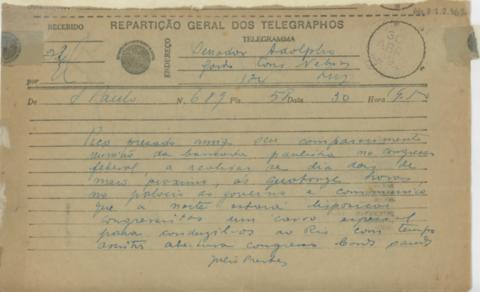 REPARTIÇÃO GERAL DOS TELEGRAPHOS
RECEBIDO
ENDEREÇO
TELEGRAMMA
Senador Adolpho
Gordo Cons Nebias
por
De S Paulo N. 689 Pls. 58 Data 30 Hora
Peço prezado amigo seu comparecimento
reunião da bancada paulista no congresso
federal a realizar se dia dois de
maio proximo, as quatorze horas
no palacio do governo e communico
que a noite estará disposição
congressistas um carro especial
para conduzil-os ao Rio com tempo
assistir abertura congresso Cords sauds
Julio Prestes